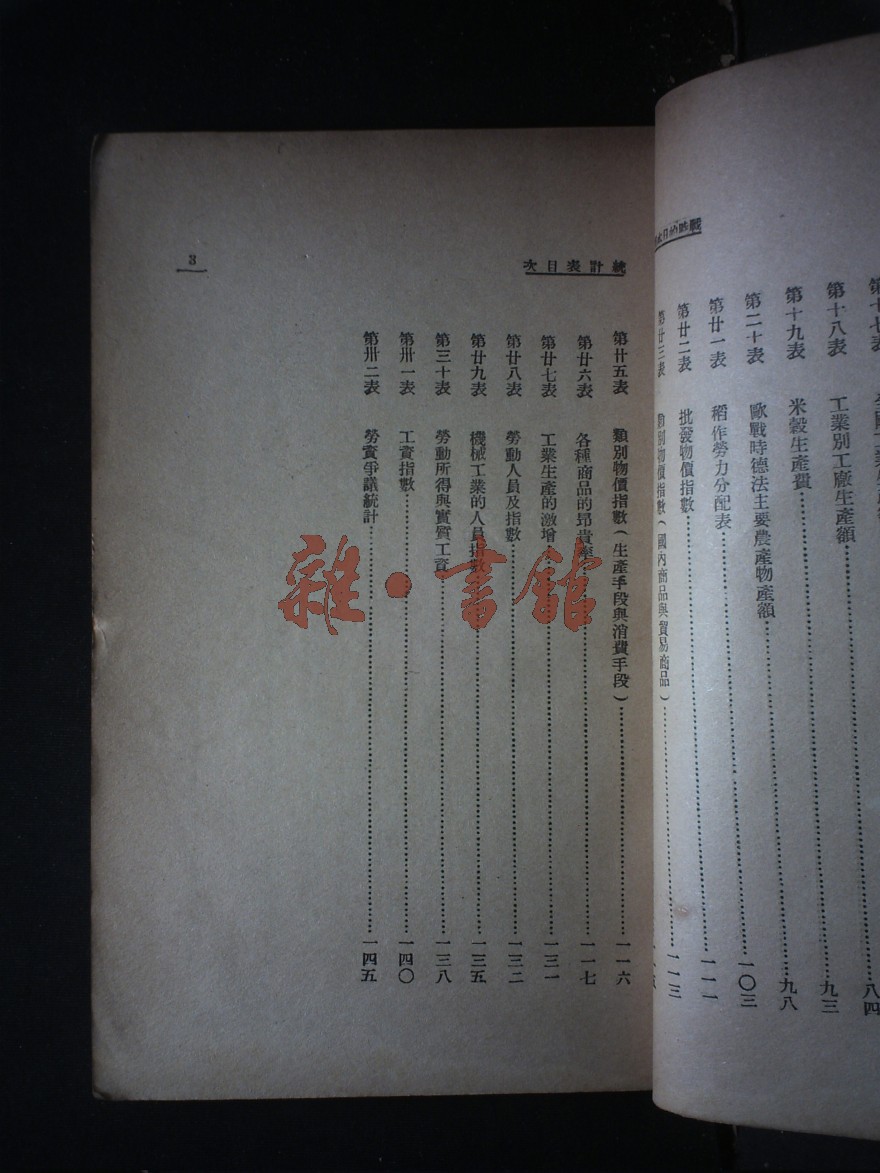 第十八表 工業別工廠生產額 九三
第十九表 米穀生產費 九八
第二十表 歐戰時德法主要農產物產額 一〇三
第廿一表 稻作勞力分配表 一一一
第廿二表 批發物價指數 一一三
第廿三表 類別物價指數(國內商品與貿易商品)
統計表目次
3
第廿五表 類別物價指數(生產手段與消費手段) 一一六
第廿六表 各種商品的昂貴率 一一七
第廿七表 工業生產的激增 一三一
第廿八表 勞動人員及指數 一三二
第廿九表 機械工業的人員指數 一三五
第三十表 勞動所得與實質工資 一三八
第卅一表 工資指數 一四〇
第卅二表 勞資爭議統計 一四五
雜·書館